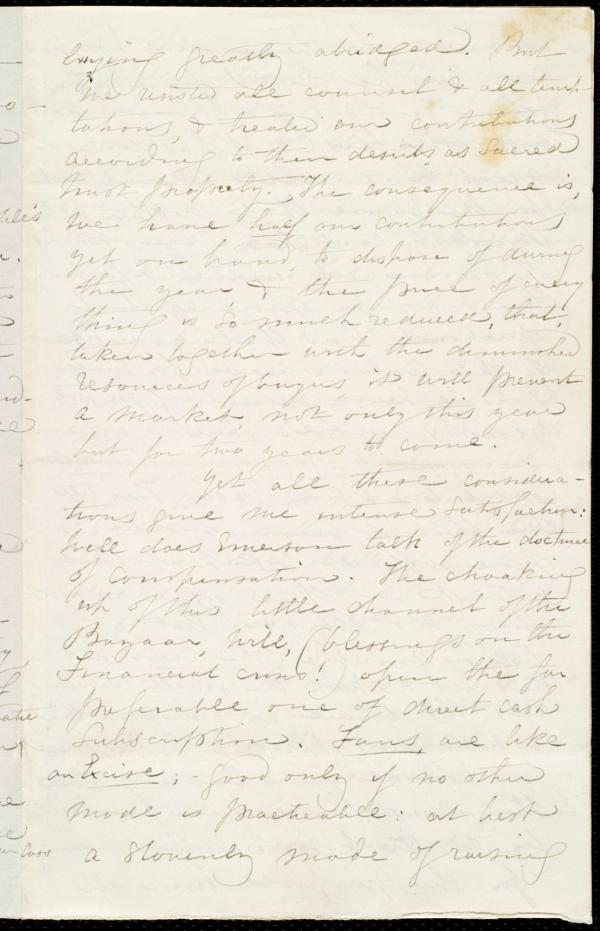 buying greatly abridged. But
we resisted all counsel & all temp-
tations, & treated our contributions
according to their deserts, as sacred
trust property. The consequence is,
we have half our contributions
yet on hand, to dispose of during
the year & the price of every
thing is so much reduced, that,
taken together with the diminished
resources of buyers, it will prevent
a market, not only this year
but for two years to come.
Yet all these considera-
tions give me intense satisfaction:
Well does Emerson talk of the doctrine
of Compensation. The choaking
up of this little channel of the
Bazaar, will, (blessings on the
Financial crisis!) open the far
preferable one of direct cash
Subscription. Fairs, are like
an Excise; - good only if no other
mode is practicable: at best
a slovenly mode of raising